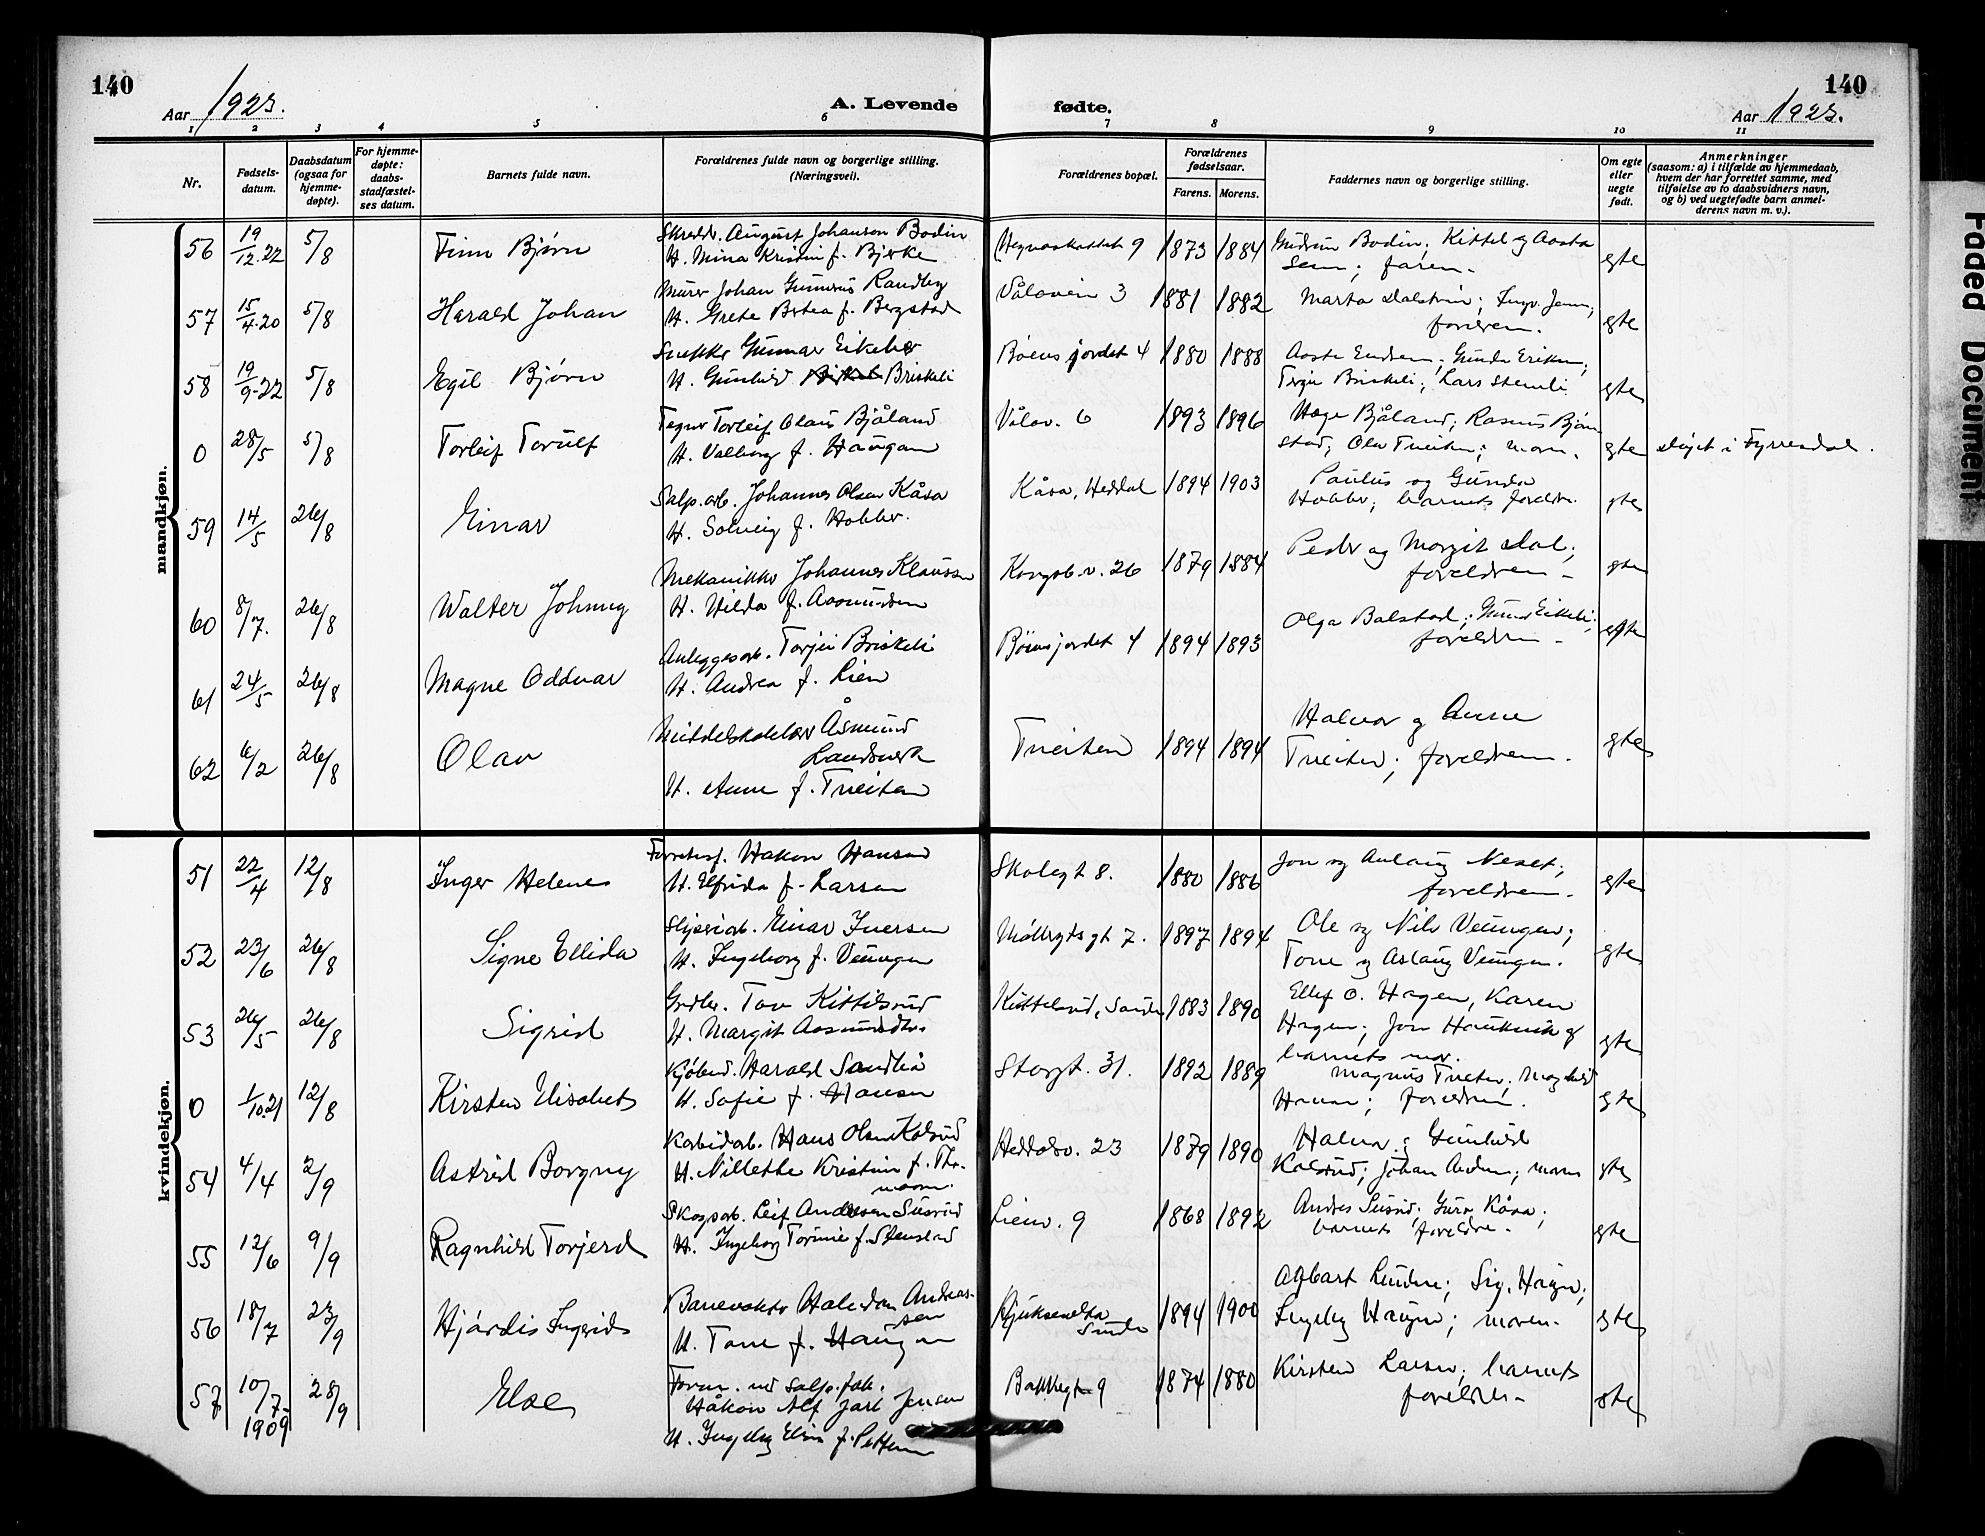 140
Aar 1923.
A. Levende
fødte.
140
Aar 1923.
1 2 3 4 5 6 7 8 9 10 11
Nr.
Fødsels-
datum.
Daabsdatum
(ogsaa for
hjemme-
døpte).
For hjemme-
døpte:
daabs-
stadfæstel-
ses datum.
Barnets fulde navn.
Forældrenes fulde navn og borgerlige stilling.
(Næringsvei).
Forældrenes bopæl.
Forældrenes
fødselsaar.
Farens. Morens.
Faddernes navn og borgerlige stilling.
Om egte
eller
uegte
født.
Anmerkninger
(saasom: a) i tilfælde av hjemmedaab,
hvem der har forrettet samme, med
tilføielse av to daabsvidners navn,
og b) ved uegtefødte barn anmel-
derens navn m. v.).
mandkjøn.
56 19/12.22 5/8 Finn Bjørn
Skredd. August Johanson Bodin
H. Mina Kristin f. Bjerke
9 1873 1884
Gudrun Bodin; Kittel og Aasta
Sem; faren. egte
57 15/4.20 5/8 Harald Johan
Murer Johan Gunerius Randby
H. Grete Bertea f. Bergstad
Vålavein 3 1881 1882
Marta Dalstrin; Ingv. Jenn;
foreldren. egte
58 19/9.22 5/8 Egil Bjørn
Snekker Gunnar Eikeber
H. Gunhild Briskeli
Bøensjordet 4 1880 1888
Aaste Endsen; Gunda Eriksen;
Terje Briskeli; Lars Stemli egte
0 28/5 5/8 Torleif Torulf
Tegner Torleif Olaus Bjåland
H. Valborg f. Haugan
Vålav. 6 1893 1896
Hege Bjåland; Rasmus Bjørn
stad; Ola Tveiten; moren. egte
døpt i Fyrresdal.
59 14/5 26/8 Einar
Salp.arb. Johannes Olsen Kåsa
H. Solveig f. Holler.
Kåsa, Heddal 1894 1903
Paulus og Gunda
Holler; barnets foreldre. egte
60 8/7. 26/8 Walter Johnny
Mekanikker Johannes Klaussen
H. Hilda f. Aasmundsen
Kongsb.v. 26 1879 1884
Peder og Margit Dal;
foreldren egte
61 24/5 26/8 Magne Oddvar
Anleggsarb. Torjei Briskeli
H. Andrea f. Lien
Bøensjordet 4 1894 1893
Olga Bolstad; Gunnar Eikeli;
foreldren egte
62 6/2 26/8 Olav
Middelskolelær Åsmund
Landsverk
H. Anne f. Tveiten
Tveiten 1894 1894
Halvor og Anne
Tveiten; foreldren. egte
kvindekjøn.
51 22/4 12/8 Inger Helene
Forretn.f. Hakon Hansen
H. Elfrida f. Larsen
Skolegt 8. 1880 1886
Jon og Aslaug Neset;
foreldren. egte
52 23/6 26/8 Signe Ellida
Sliperiarb. Einar Iversen
H. Ingeborg f. Veungen
gt 7. 1897 1894
Ole og Nils Veungen;
Tone og Aslaug Veungen. egte
53 26/5 26/8 Sigrid
Grdbr. Tov Kittilsrud
H. Margit Aasmundsdtr.
Kittelsrud, Sauda 1883 1890
Ellef O. Hagen, Karen
Hagen; Jon Haukvik og
barnets mor. egte
0 1/10.21 12/8 Kirsten Elisabet
Kjøbmd. Harald Sandlia
H. Sofie f. Hansen
Storgt. 31. 1892 1889
Magnus Tveiten; Maghild
Hansen; foreldren. egte
54 4/4 2/9 Astrid Borgny
Karbidarb. Hans Olsen Kolsrud
H. Nillethe Kristine f. Tho-
Heddalsv. 23 1879 1890
Halvor og Gunhild
Kolsrud; Johan Andersen; moren egte
55 12/6 9/9 Ragnhild Torjerd
Skogsarb. Leif Andersen Susrud
H. Ingeborg Torine f. Stenstad
Lienv. 9 1868 1892
Anders Susrud; Guro Kåsa;
barnets foreldre. egte
56 18/7 23/9 Hjørdis Ingerid
Banevokter Halvdan Andreas-
sen
H. Tone f. Haugen
Hjuksevelta
Sauda 1894 1900
Agbart Lindem; Sig. Haugen;
Ingeborg Haugen; moren. egte
57 10/7 1909 28/9 Else
Form. ved Salp.fabr.
Håkon Alf Jarl Jensen
H. Ingeborg Elise f. Pettersen
Bakkegt 9 1874 1880
Kirsten Larsen; barnets
foreldre egte
Faded Document